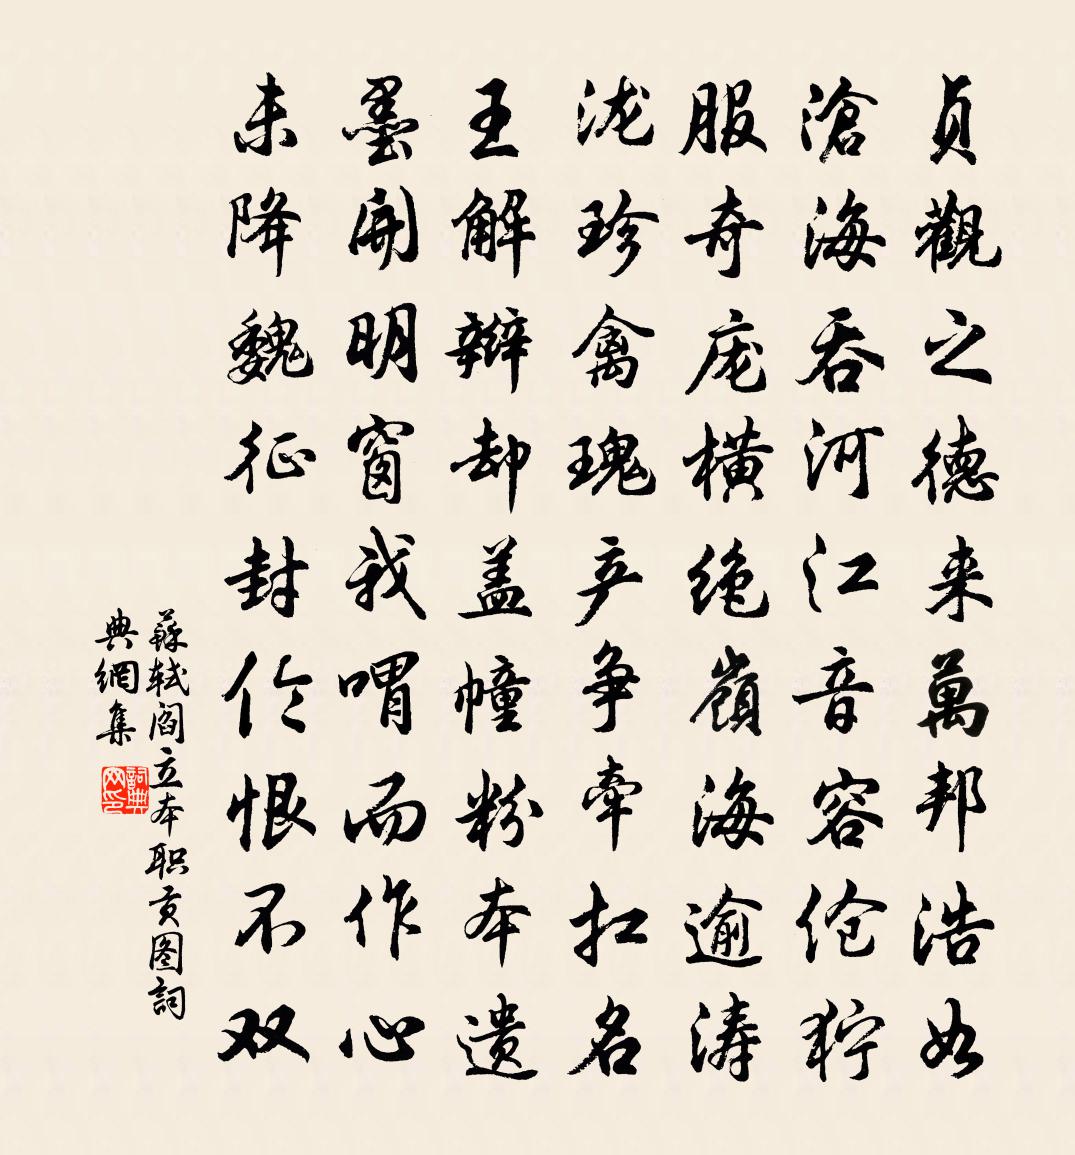 貞觀之德来萬邦浩如
滄海吞河江音容伧狞
服奇庞横绝嶺海逾涛
泷珍禽瑰产争牵扛名
王解辫却盖幢粉本遗
墨開明窗我喟而作心
未降魏征封伦恨不双
蘇轼阎立本职贡图詞
典網集
詞典
网印